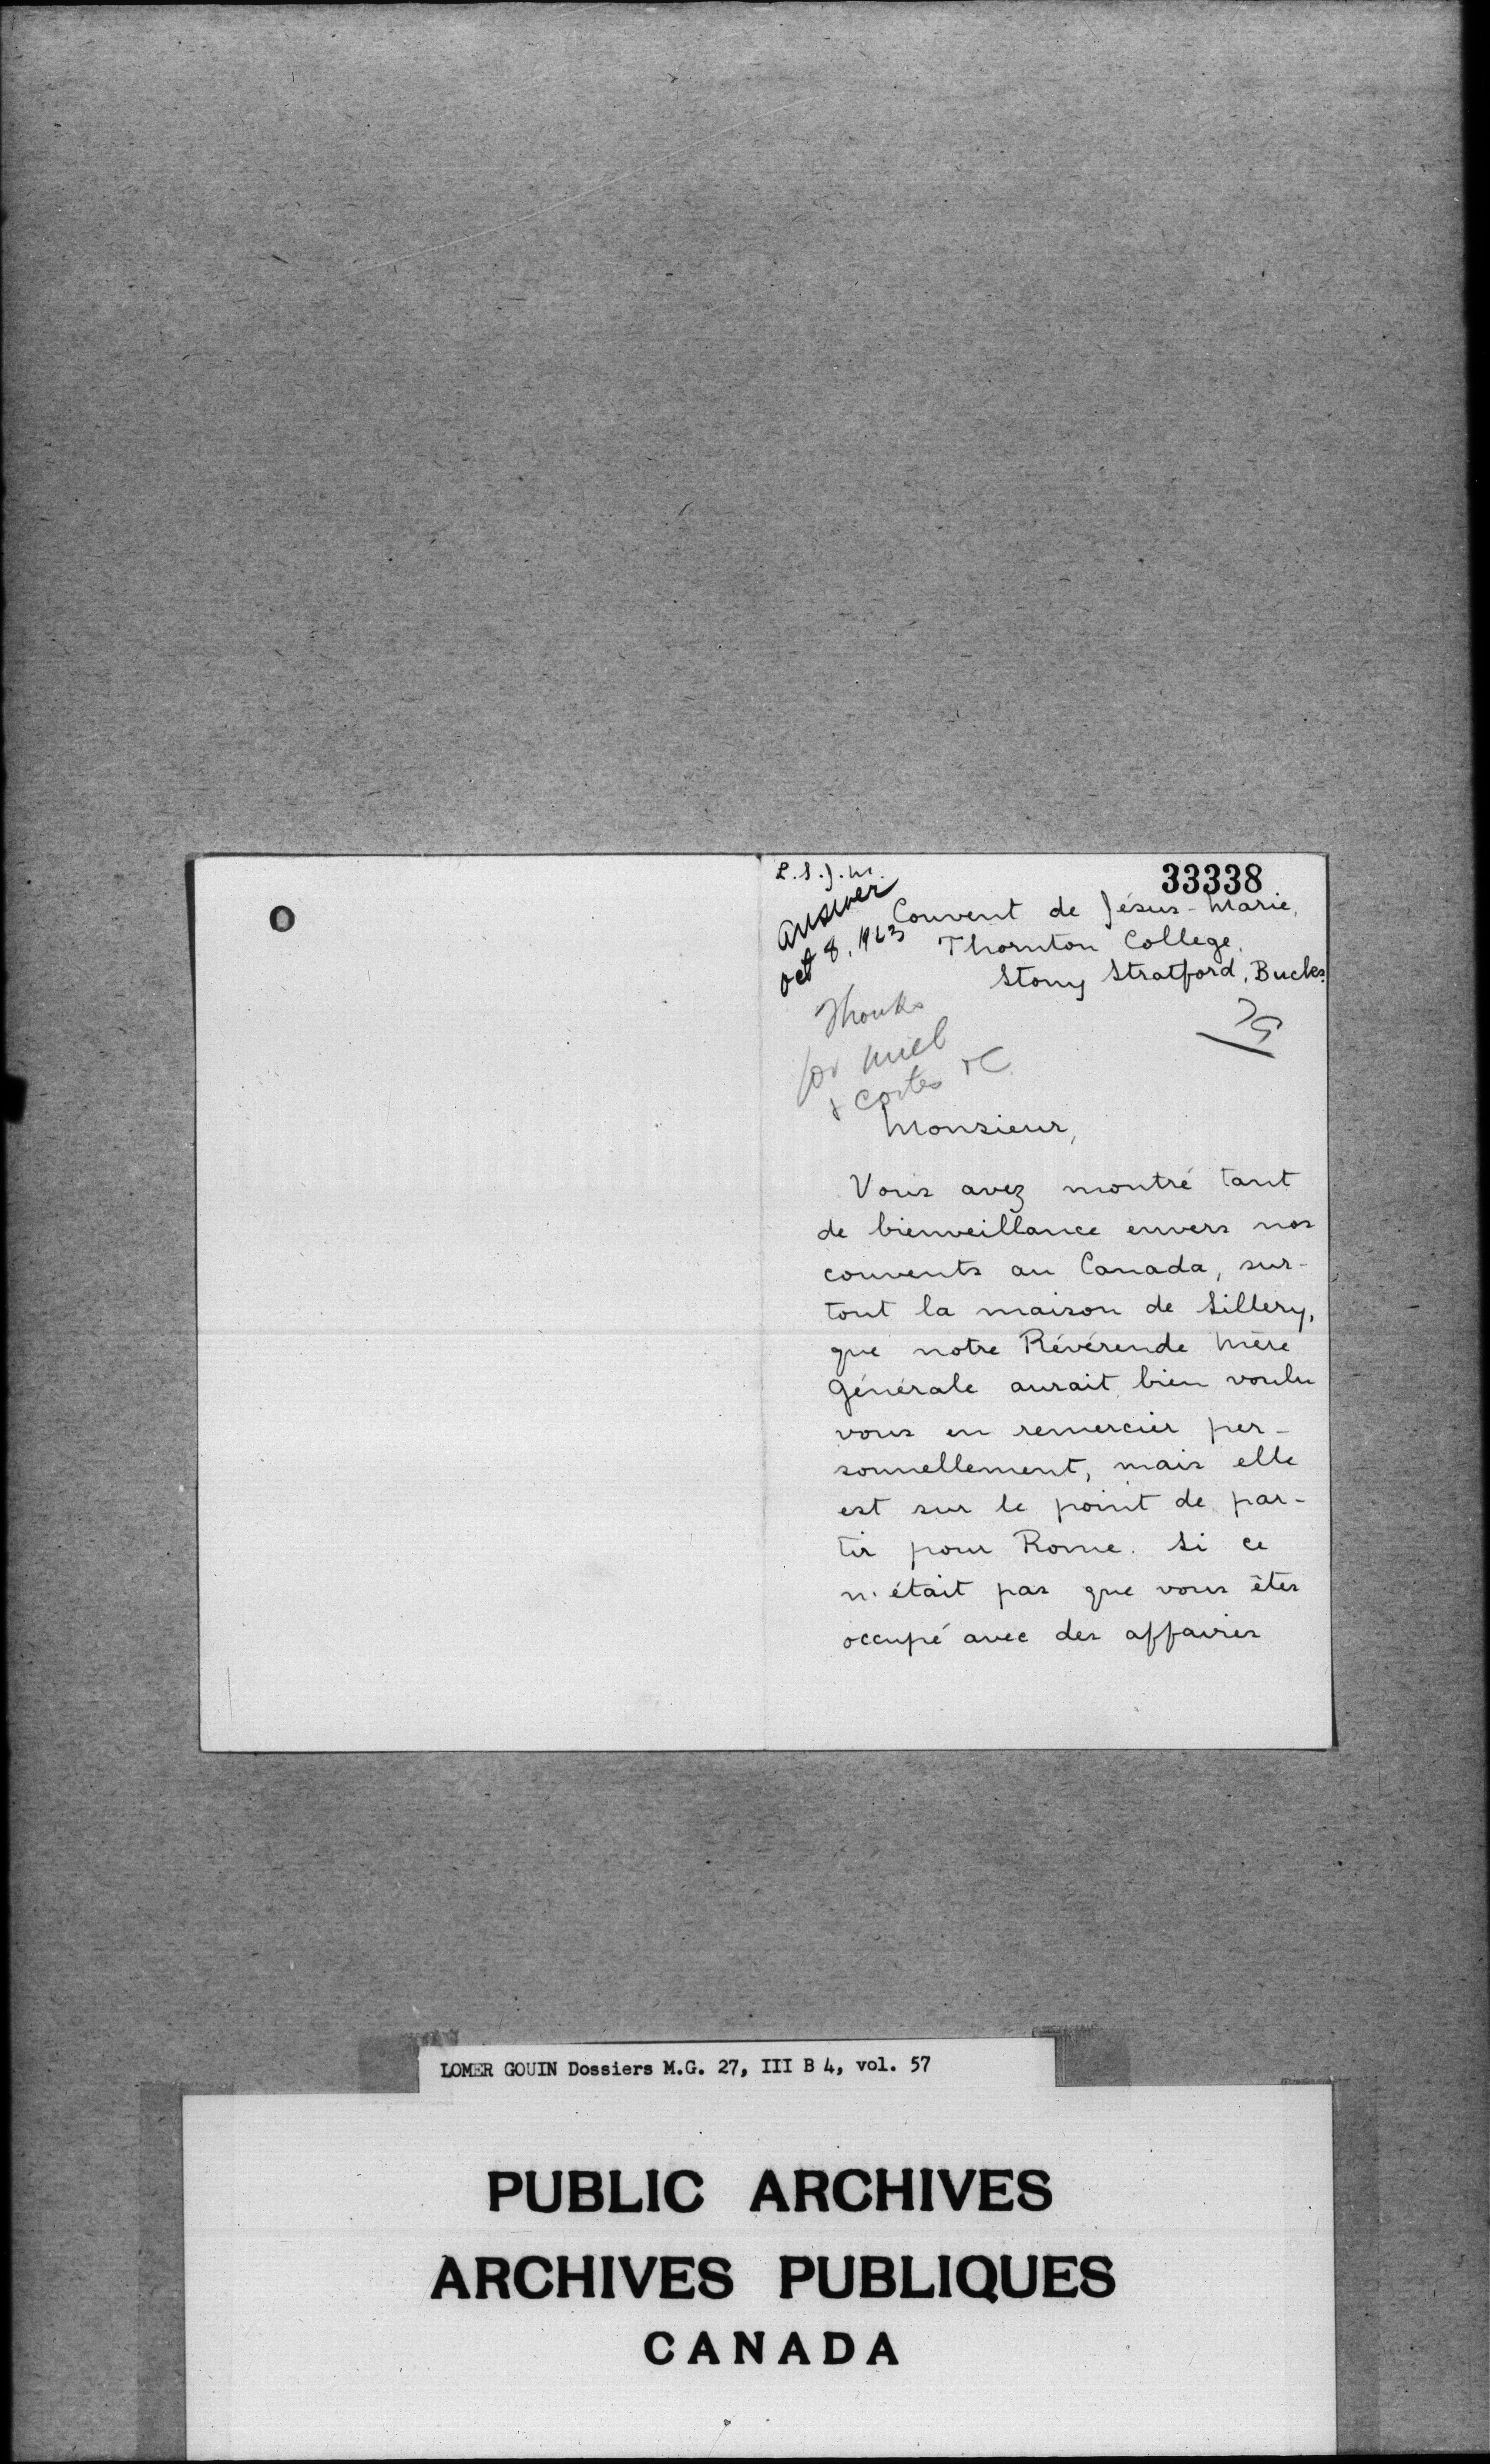 L.S.J.M.
33338
answer
Oct 8, 1923
Couvent de Jésus-Marie,
Thornton College.
Stony Stratford, Bucks.
Thanks
for miel
& cartes &c
Monsieur,
Vous avez montré tant
de bienveillance envers nos
couvents au Canada, sur-
tout la maison de Sillery,
que notre Révérende Mère
Générale aurait bien voulu
vous en remercier per-
sonnellement, mais elle
est sur le point de par-
tir pour Rome. Si ce
n'était pas que vous êtes
occupé avec des affaires
LOMER GOUIN Dossiers M.G. 27, III B 4, vol. 57
PUBLIC ARCHIVES
ARCHIVES PUBLIQUES
CANADA